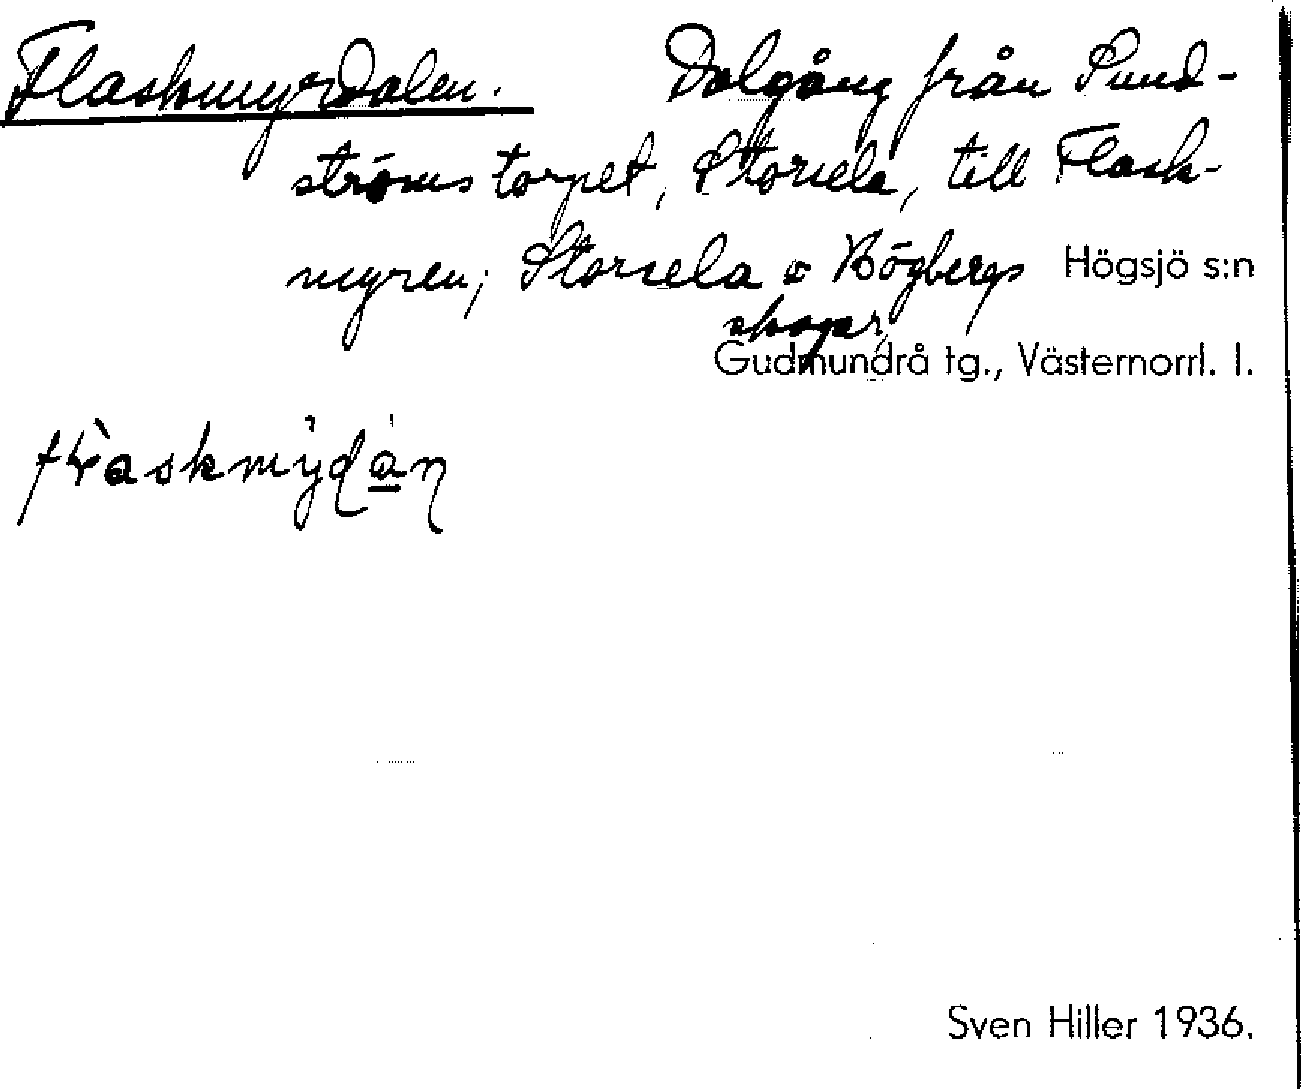 Flaskmyrdalen. Dalgång från Sund-
ströms torpet, Storsela, till Flask-
myren; Storsela o Högbergs Högsjö s:n
skogar
Gudmundrå tg., Västernorrl. l.
Sven Hiller 1936.